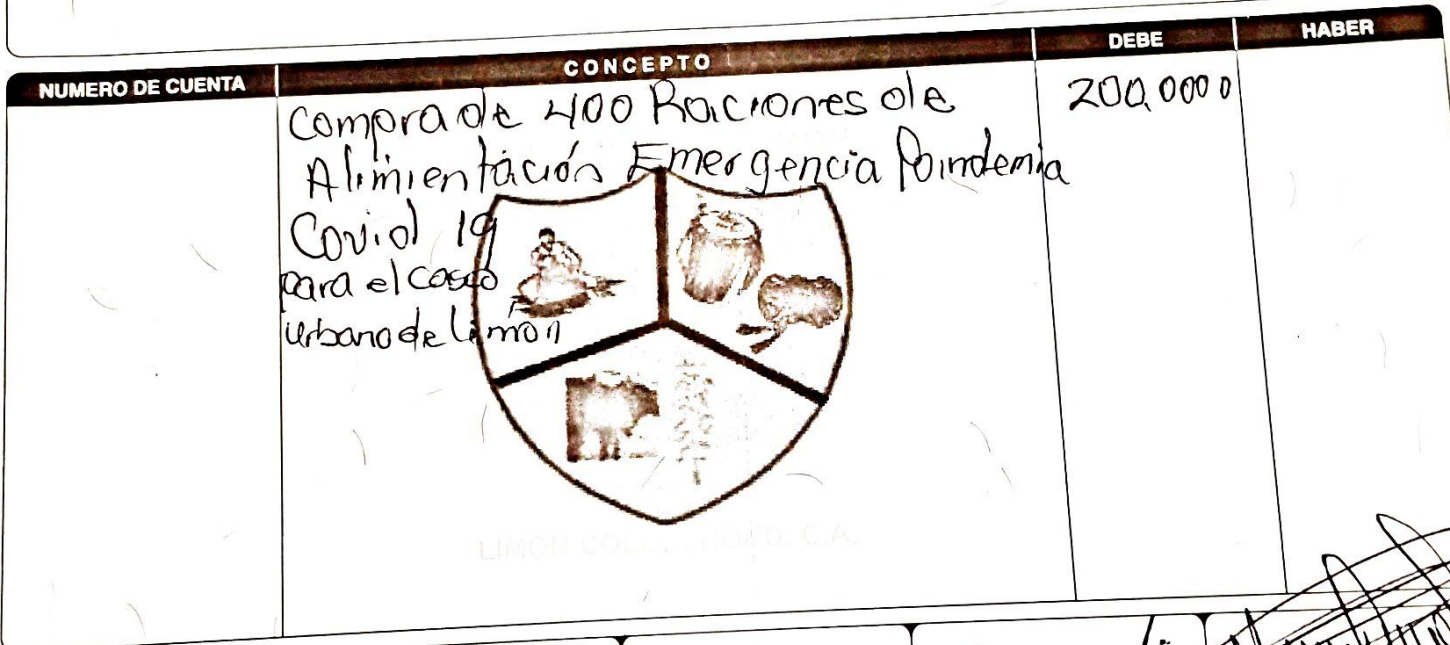 NUMERO DE CUENTA CONCEPTO DEBE HABER
Compra de 400 Raciones de 200,0000
Alimientación Emergencia Pandemia
Covid 19
para el casco
urbano de Limón
LIMON COLON, C.A.